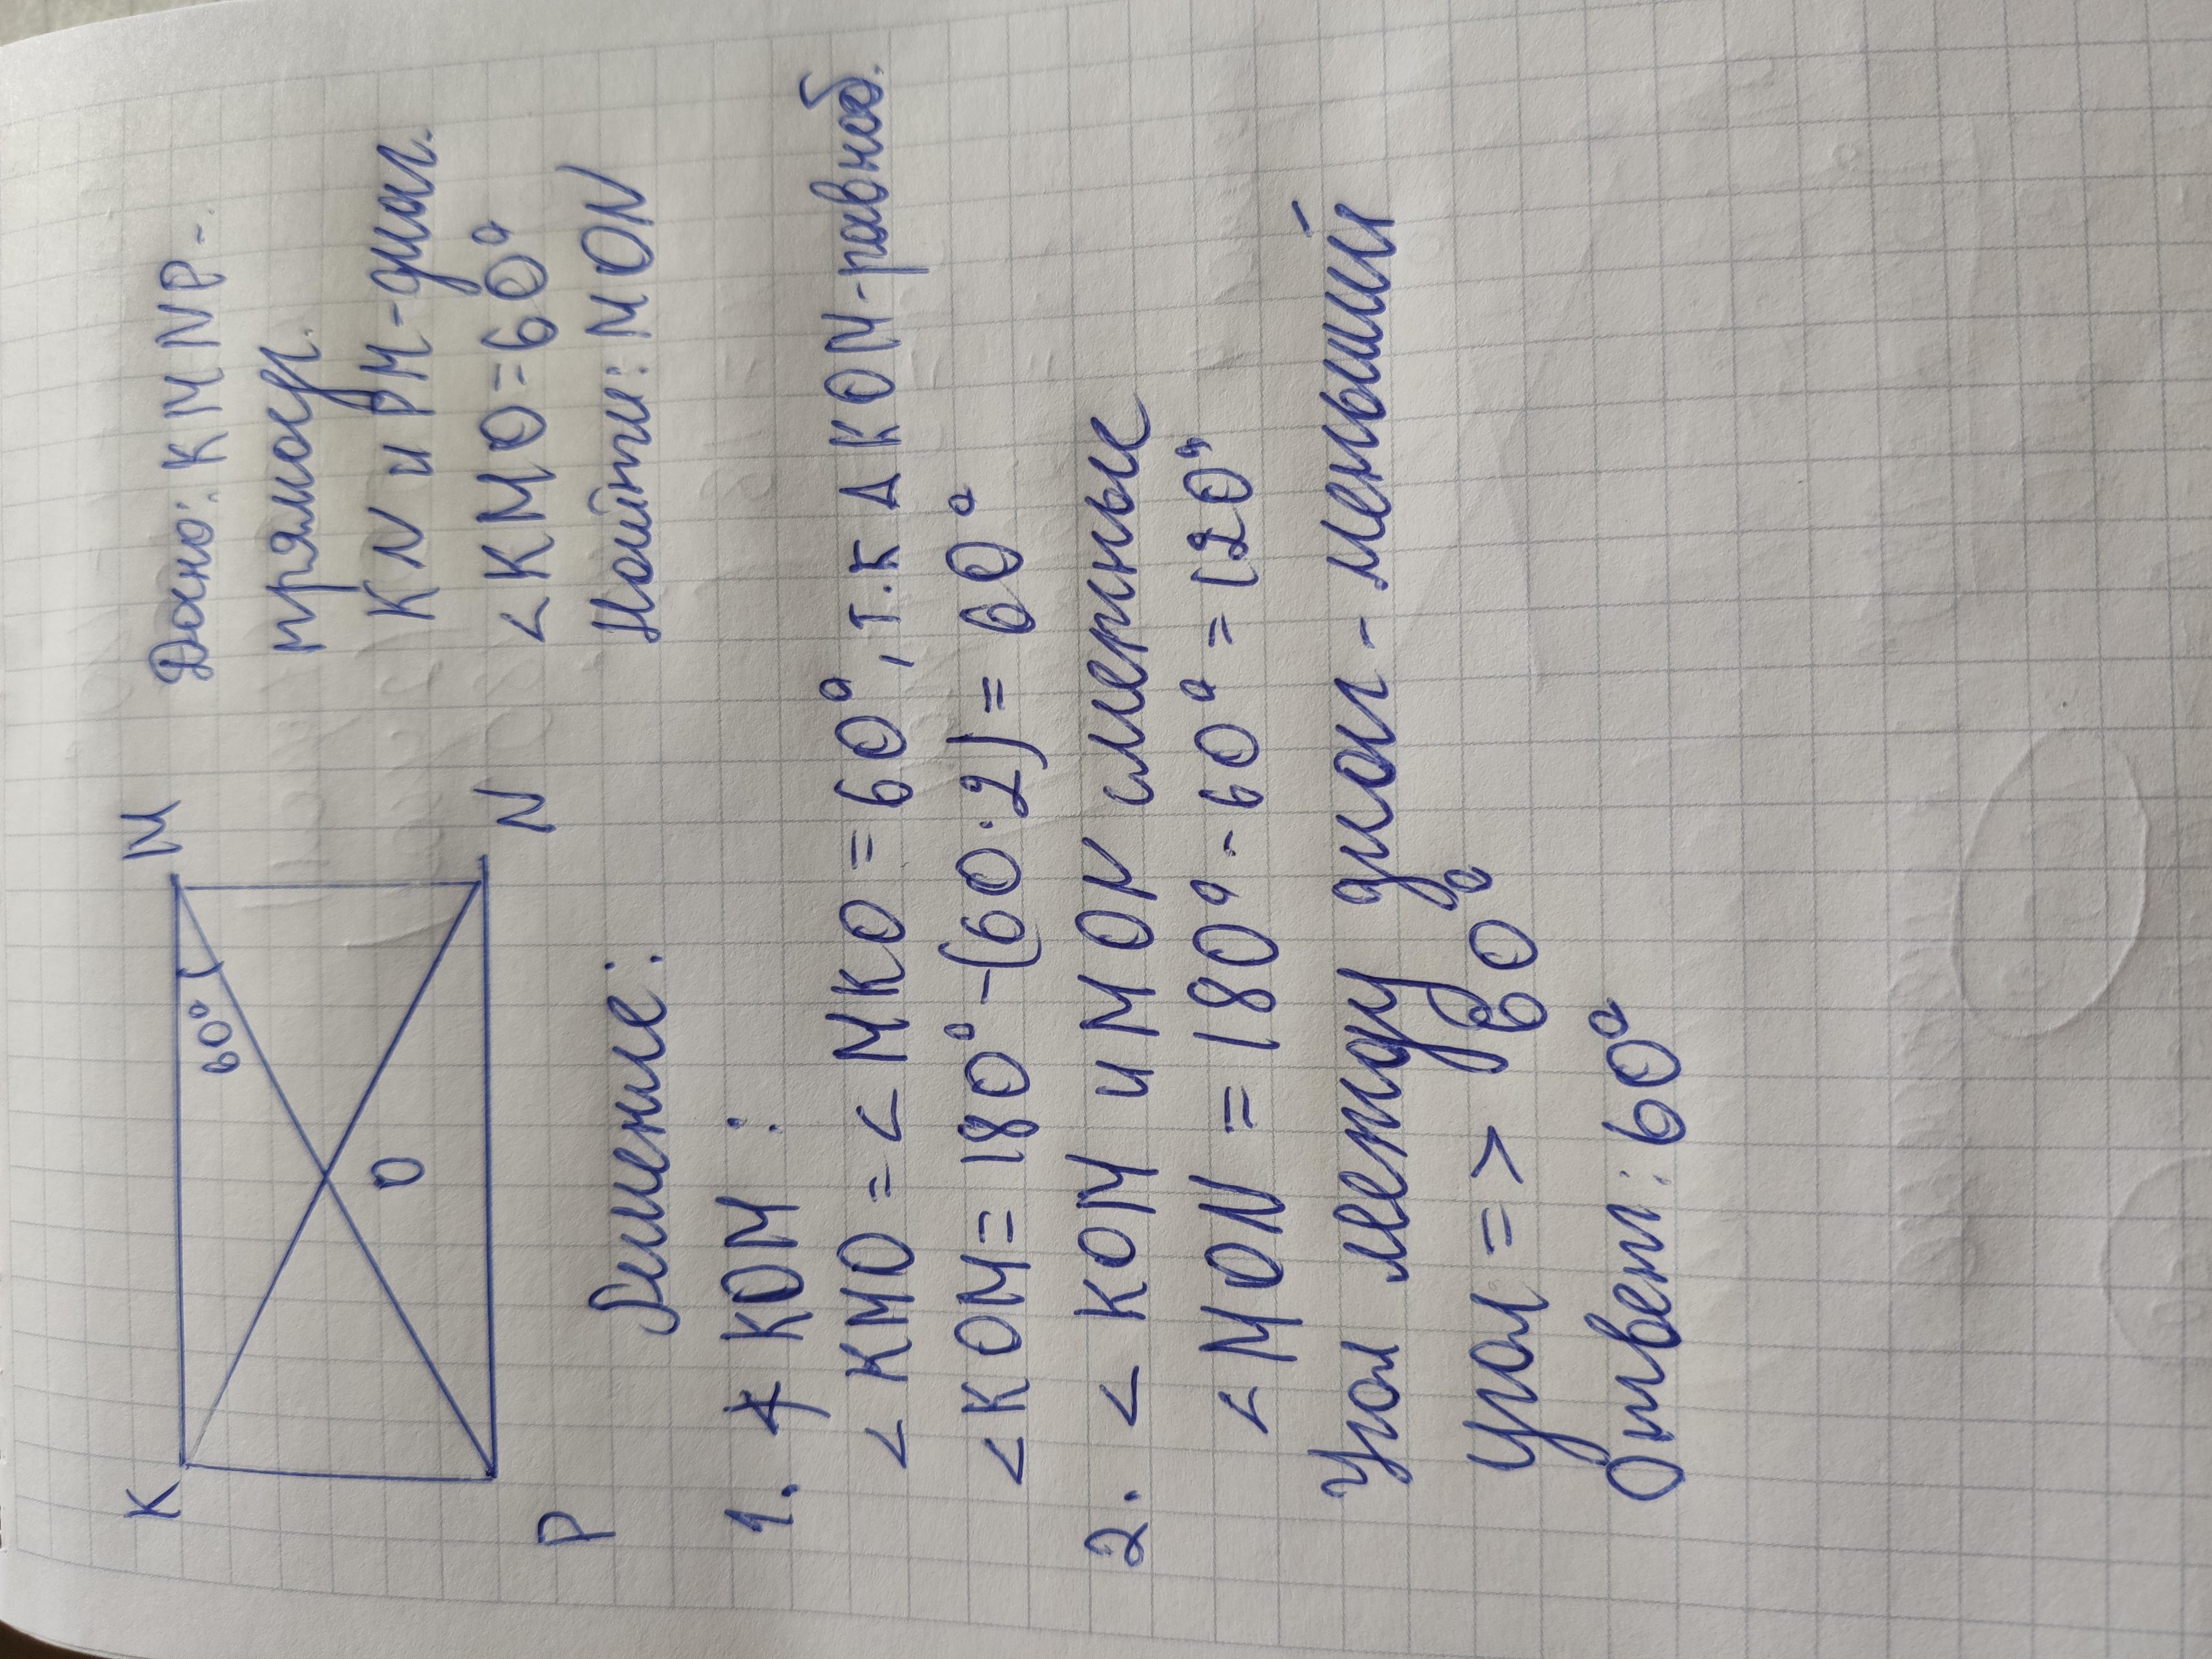 K M
60°
O
P N
Дано: KMNP-
прямоуг.
KN и PM-диаг.
<KMO=60°
Найти: MON
Решение:
1. KOM:
<KMO=<MKO=60°, т.к ∆ KOM-равноб.
<KOM=180°-(60·2)=60°
2. <KOM и MON смежные
<MON=180°-60°=120°
Угол между диаг-меньший
угол => 60°
Ответ: 60°